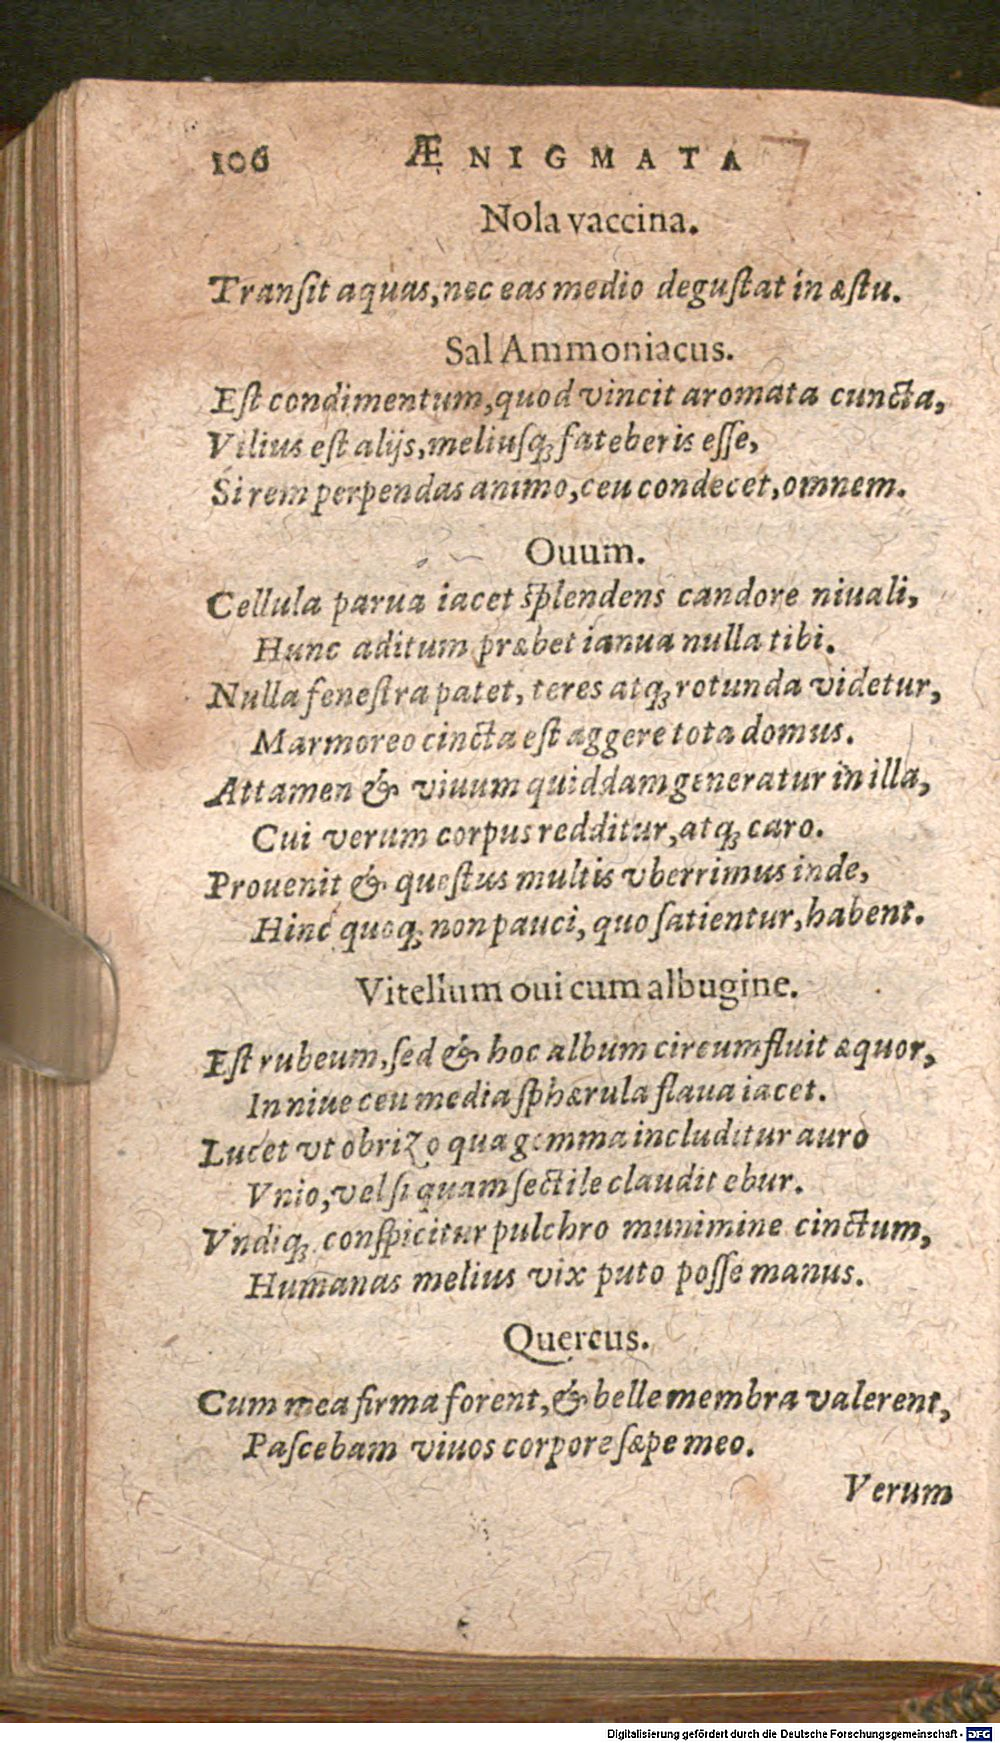 106 ÆNIGMATA
Nola vaccina.
Tranſit aquas, nec eas medio deguſtat in æſtu.
Sal Ammoniacus.
Eſt condimentum, quod vincit aromata cuncta,
Vilius eſt alijs, meliuſq́; fateberis eſſe,
Si rem perpendas animo, ceu condecet, omnem.
Ouum.
Cellula parua iacet ſplendens candore niuali,
Hunc aditum præbet ianua nulla tibi.
Nulla feneſtra patet, teres atq; rotunda videtur,
Marmoreo cincta eſt aggere tota domus.
Attamen & viuum quiddam generatur in illa,
Cui verum corpus redditur, atq; caro.
Prouenit & queſtus multis vberrimus inde,
Hinc quoq; non pauci, quo ſatientur, habent.
Vitellum oui cum albugine.
Eſt rubeum, ſed & hoc album circumfluit æquor,
In niue ceu media ſphærula flaua iacet.
Lucet vt obrizo qua gemma includitur auro
Vnio, vel ſi quam ſectile claudit ebur.
Vndiq; conſpicitur pulchro munimine cinctum,
Humanas melius vix puto poſſe manus.
Quercus.
Cum mea firma forent, & belle membra valerent,
Paſcebam viuos corpore ſæpe meo.
Verum
Digitalisierung gefördert durch die Deutsche Forschungsgemeinschaft - DFG